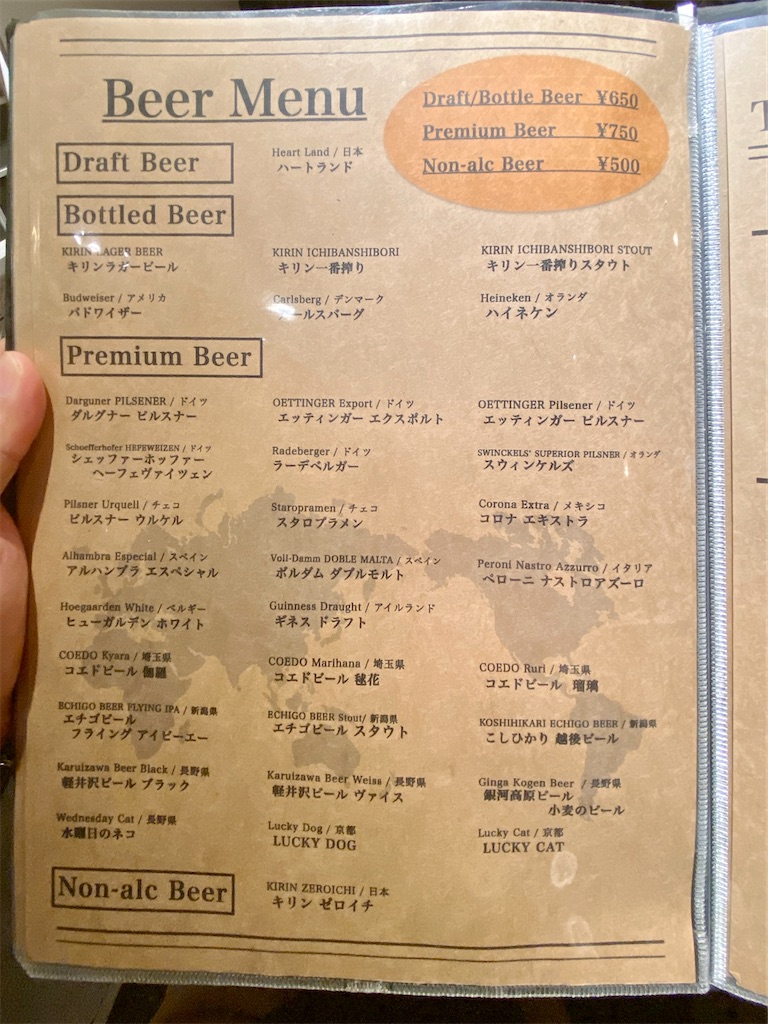 Beer Menu
Draft/Bottle Beer ¥650
Premium Beer ¥750
Non-alc Beer ¥500
Draft Beer
Heart Land / 日本
ハートランド
Bottled Beer
KIRIN LAGER BEER
キリンラガービール
KIRIN ICHIBANSHIBORI
キリン一番搾り
KIRIN ICHIBANSHIBORI STOUT
キリン一番搾りスタウト
Budweiser / アメリカ
バドワイザー
Carlsberg / デンマーク
カールスバーグ
Heineken / オランダ
ハイネケン
Premium Beer
Darguner PILSENER / ドイツ
ダルグナー ピルスナー
OETTINGER Export / ドイツ
エッティンガー エクスポルト
OETTINGER Pilsener / ドイツ
エッティンガー ピルスナー
Schoefferhofer HEFEWEIZEN / ドイツ
シェッファーホッファー
ヘーフェヴァイツェン
Radeberger / ドイツ
ラーデベルガー
SWINCKELS' SUPERIOR PILSNER / オランダ
スウィンケルズ
Pilsner Urquell / チェコ
ピルスナー ウルケル
Staropramen / チェコ
スタロプラメン
Corona Extra / メキシコ
コロナ エキストラ
Alhambra Especial / スペイン
アルハンブラ エスペシャル
Voll-Damm DOBLE MALTA / スペイン
ボルダム ダブルモルト
Peroni Nastro Azzurro / イタリア
ペローニ ナストロアズーロ
Hoegaarden White / ベルギー
ヒューガルデン ホワイト
Guinness Draught / アイルランド
ギネス ドラフト
COEDO Kyara / 埼玉県
コエドビール 伽羅
COEDO Marihana / 埼玉県
コエドビール 毬花
COEDO Ruri / 埼玉県
コエドビール 瑠璃
ECHIGO BEER FLYING IPA / 新潟県
エチゴビール
フライング アイピーエー
ECHIGO BEER Stout/ 新潟県
エチゴビール スタウト
KOSHIHIKARI ECHIGO BEER / 新潟県
こしひかり 越後ビール
Karuizawa Beer Black / 長野県
軽井沢ビール ブラック
Karuizawa Beer Weiss / 長野県
軽井沢ビール ヴァイス
Ginga Kogen Beer / 長野県
銀河高原ビール
小麦のビール
Wednesday Cat / 長野県
水曜日のネコ
Lucky Dog / 京都
LUCKY DOG
Lucky Cat / 京都
LUCKY CAT
Non-alc Beer
KIRIN ZEROICHI / 日本
キリン ゼロイチ